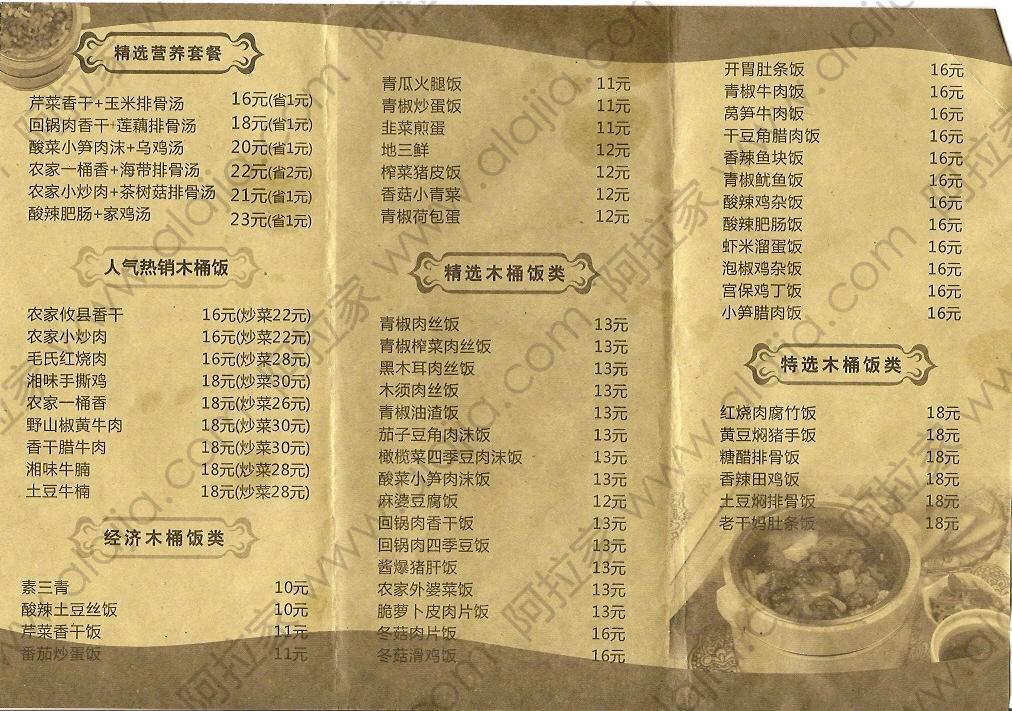 精选营养套餐
芹菜香干+玉米排骨汤 16元(省1元)
回锅肉香干+莲藕排骨汤 18元(省1元)
酸菜小笋肉沫+乌鸡汤 20元(省1元)
农家一桶香+海带排骨汤 22元(省2元)
农家小炒肉+茶树菇排骨汤 21元(省1元)
酸辣肥肠+家鸡汤 23元(省1元)
人气热销木桶饭
农家攸县香干 16元(炒菜22元)
农家小炒肉 16元(炒菜22元)
毛氏红烧肉 16元(炒菜28元)
湘味手撕鸡 18元(炒菜30元)
农家一桶香 18元(炒菜26元)
野山椒黄牛肉 18元(炒菜30元)
香干腊牛肉 18元(炒菜30元)
湘味牛腩 18元(炒菜28元)
土豆牛楠 18元(炒菜28元)
经济木桶饭类
素三青 10元
酸辣土豆丝饭 10元
芹菜香干饭 11元
番茄炒蛋饭 11元
青瓜火腿饭 11元
青椒炒蛋饭 11元
韭菜煎蛋 11元
地三鲜 12元
榨菜猪皮饭 12元
香菇小青菜 12元
青椒荷包蛋 12元
精选木桶饭类
青椒肉丝饭 13元
青椒榨菜肉丝饭 13元
黑木耳肉丝饭 13元
木须肉丝饭 13元
青椒油渣饭 13元
茄子豆角肉沫饭 13元
橄榄菜四季豆肉沫饭 13元
酸菜小笋肉沫饭 13元
麻婆豆腐饭 12元
回锅肉香干饭 13元
回锅肉四季豆饭 13元
酱爆猪肝饭 13元
农家外婆菜饭 13元
脆萝卜皮肉片饭 13元
冬菇肉片饭 16元
冬菇滑鸡饭 16元
开胃肚条饭 16元
青椒牛肉饭 16元
莴笋牛肉饭 16元
干豆角腊肉饭 16元
香辣鱼块饭 16元
青椒鱿鱼饭 16元
酸辣鸡杂饭 16元
酸辣肥肠饭 16元
虾米溜蛋饭 16元
泡椒鸡杂饭 16元
宫保鸡丁饭 16元
小笋腊肉饭 16元
特选木桶饭类
红烧肉腐竹饭 18元
黄豆焖猪手饭 18元
糖醋排骨饭 18元
香辣田鸡饭 18元
土豆焖排骨饭 18元
老干妈肚条饭 18元
阿拉家 www.alajia.com